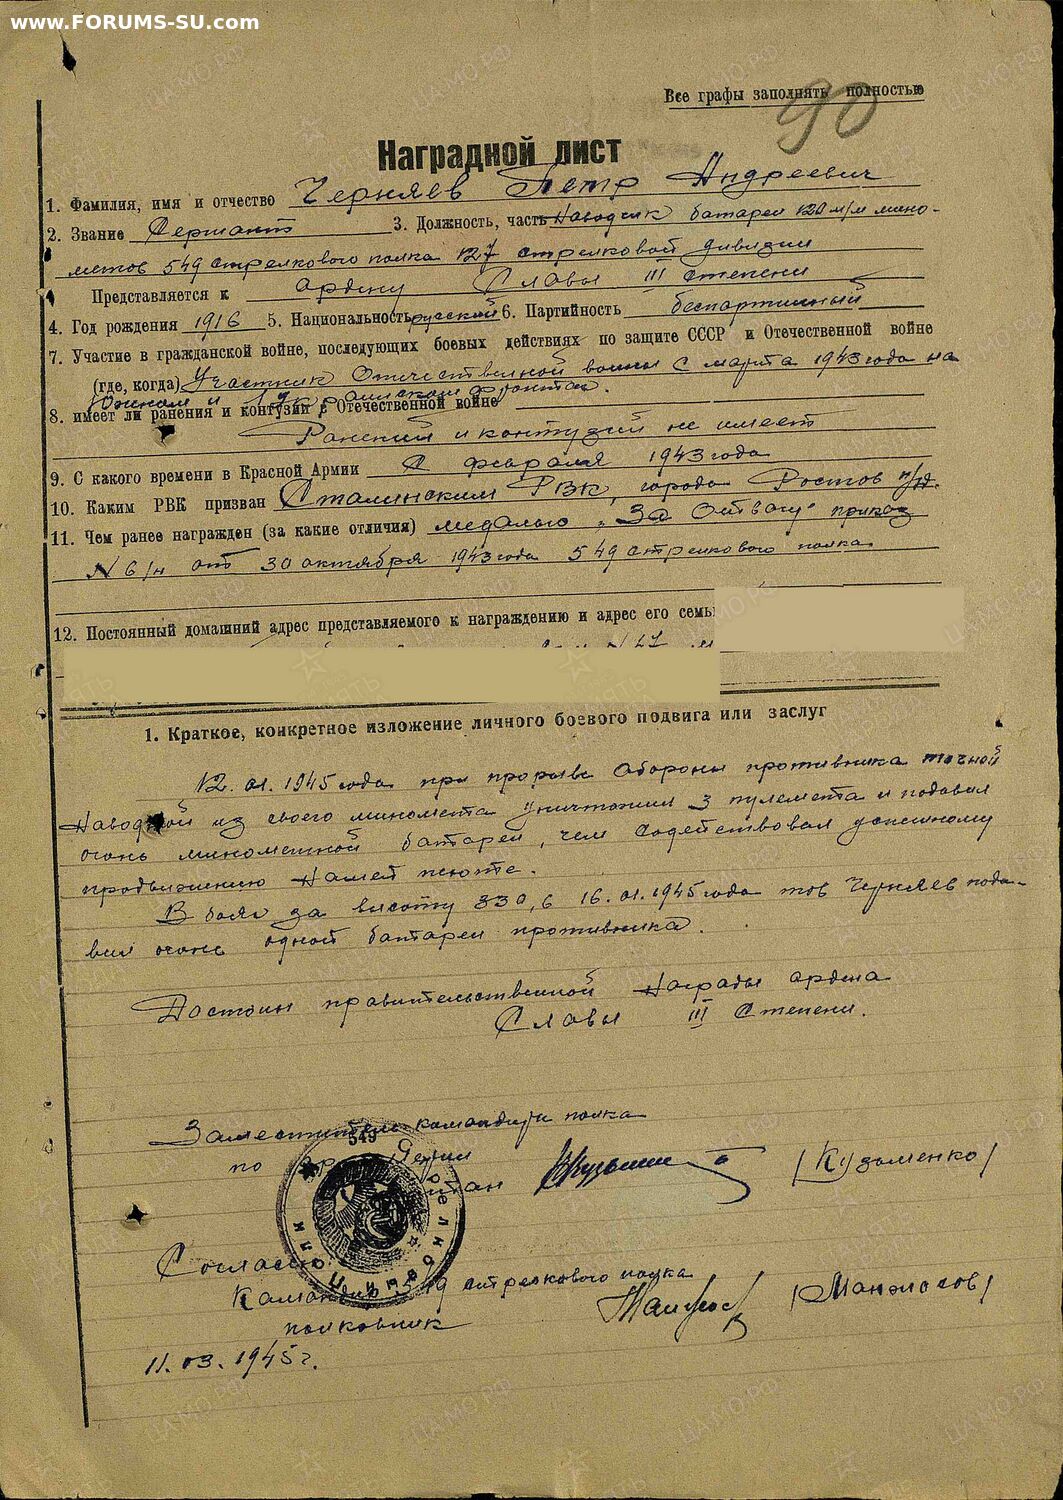 www.FORUMS-SU.com
Все графы заполнять полностью
90
Наградной лист
1. Фамилия, имя и отчество Черняев Петр Андреевич
2. Звание Сержант 3. Должность, часть Наводчик батареи 120 м/м мино-
метов 549 стрелкового полка 127 стрелковой дивизии
Представляется к ордену Славы III степени
4. Год рождения 1916 5. Национальность русский 6. Партийность беспартийный
7. Участие в гражданской войне, последующих боевых действиях по защите СССР и Отечественной войне
(где, когда) Участник Отечественной войны с марта 1943 года на
Южном и 1 Украинском фронтах.
8. имеет ли ранения и контузии в Отечественной войне
Ранений и контузий не имеет
9. С какого времени в Красной Армии С февраля 1943 года
10. Каким РВК призван Сталинским РВК, города Ростов н/д.
11. Чем ранее награжден (за какие отличия) медалью "За Отвагу" приказ
N б/н от 30 октября 1943 года 549 стрелкового полка
12. Постоянный домашний адрес представляемого к награждению и адрес его семьи
1. Краткое, конкретное изложение личного боевого подвига или заслуг
12.01.1945 года при прорыве обороны противника точной
наводкой из своего миномета уничтожил 3 пулемета и подавил
огонь минометной батареи, чем содействовал успешному
продвижению нашей пехоте.
В боях за высоту 330,6 16.01.1945 года тов Черняев пода-
вил огонь одной батареи противника.
Достоин правительственной награды ордена
Славы III Степени.
Заместитель командира полка
по
549
/Кузьменко/
Согласен
Командир 549 стрелкового полка
полковник
11.03.1945 г.